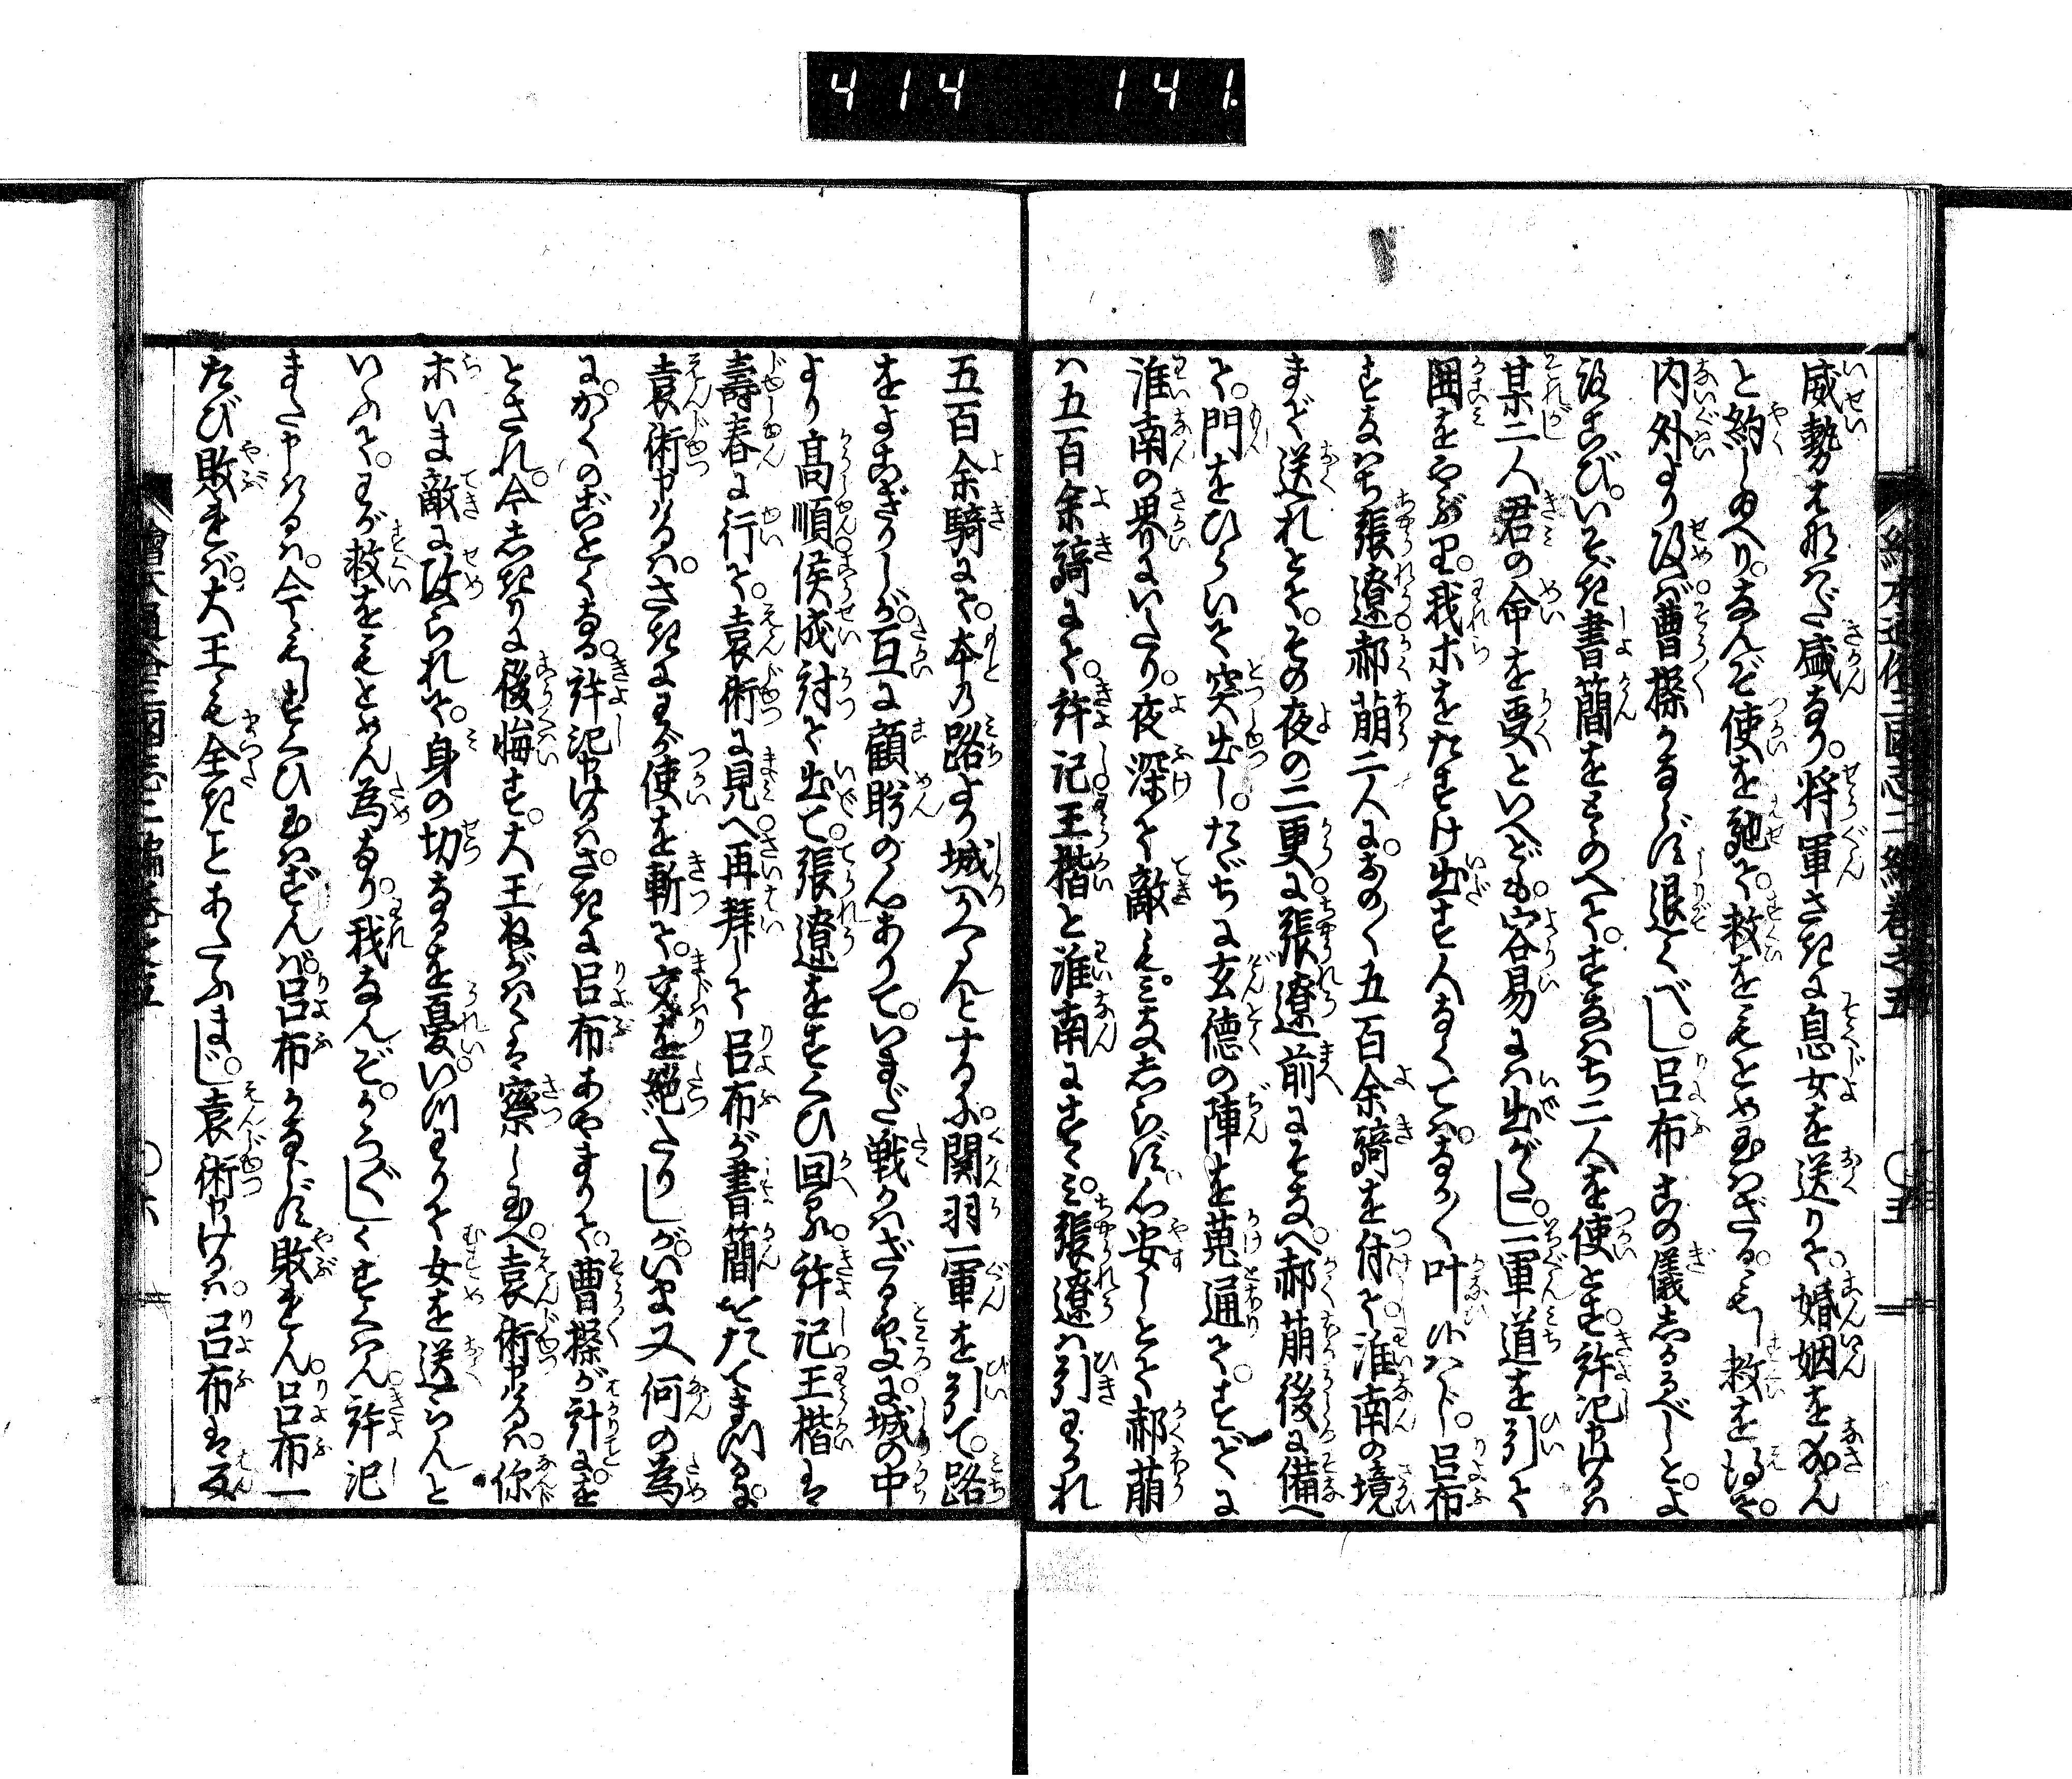 414 141
繪本通俗三國志二編巻之五 〇五
威勢はなはだ盛なり。将軍さきに息女を送りて。婚姻をなさん
と約し給へり。なんぞ使を馳て。救をもとめ玉はざる。もし救を得て。
内外より攻ば曹操かならず退くべし。呂布この儀しかるべしと。よ
ろこび。いそぎ書簡をとゝのへて。すなはち二人を使とす。許汜申けるは
某二人君の命を受といへども。容易には出がたし。一軍道を引て
囲をやぶり。我ホをたすけ出す人なくては。かなふ叶候はじ。呂布
すなはち張遼郝萠二人に。おの〳〵五百余騎を付て。淮南の境
まで送れとて。その夜の二更に。張遼前にそなへ。郝萠後に備へ
て。門をひらいて突出し。たゞちに玄徳の陣を蒐通て。すでに
淮南の界にいたり。夜深て敵も。みなしらず心安しとて郝萠
は五百余騎にて。許汜王楷と淮南にすゝみ。張遼は引わかれ
五百余騎にて。本乃路より城へかへらんとするに。関羽一軍を引て。路
をよこぎりしが。互に顧盼の心ありて。いまだ戦かはざる処に。城の中
より高順侯成討て出て。張遼をすくひ回る。許汜王楷は
壽春に行て。袁術に見へ再拜して呂布が書簡をたてまつるに。
袁術申けるは。さきにわが使を斬て。交を絶たりしが。いま又何の為
に。かくのごとくなる。許汜申けるは。さきに呂布あやまりて。曹操が計にを
とされ。今しきりに後悔す。大王ねがはくは察し玉へ。袁術申けるは。你
ホいま敵に攻られて。身の切なるを憂い。いつわりて女を送らんと
いふて。わが救をもとめん為なり。我なんぞ。かろ〴〵しくすくはん。許汜
また申けるは。今もしすくひ玉はずんば。呂布かならず敗れん。呂布一
たび敗れば。大王も全きことあたふまじ。袁術申けるは。呂布は反
繪本通俗三國志二編巻之五 〇六